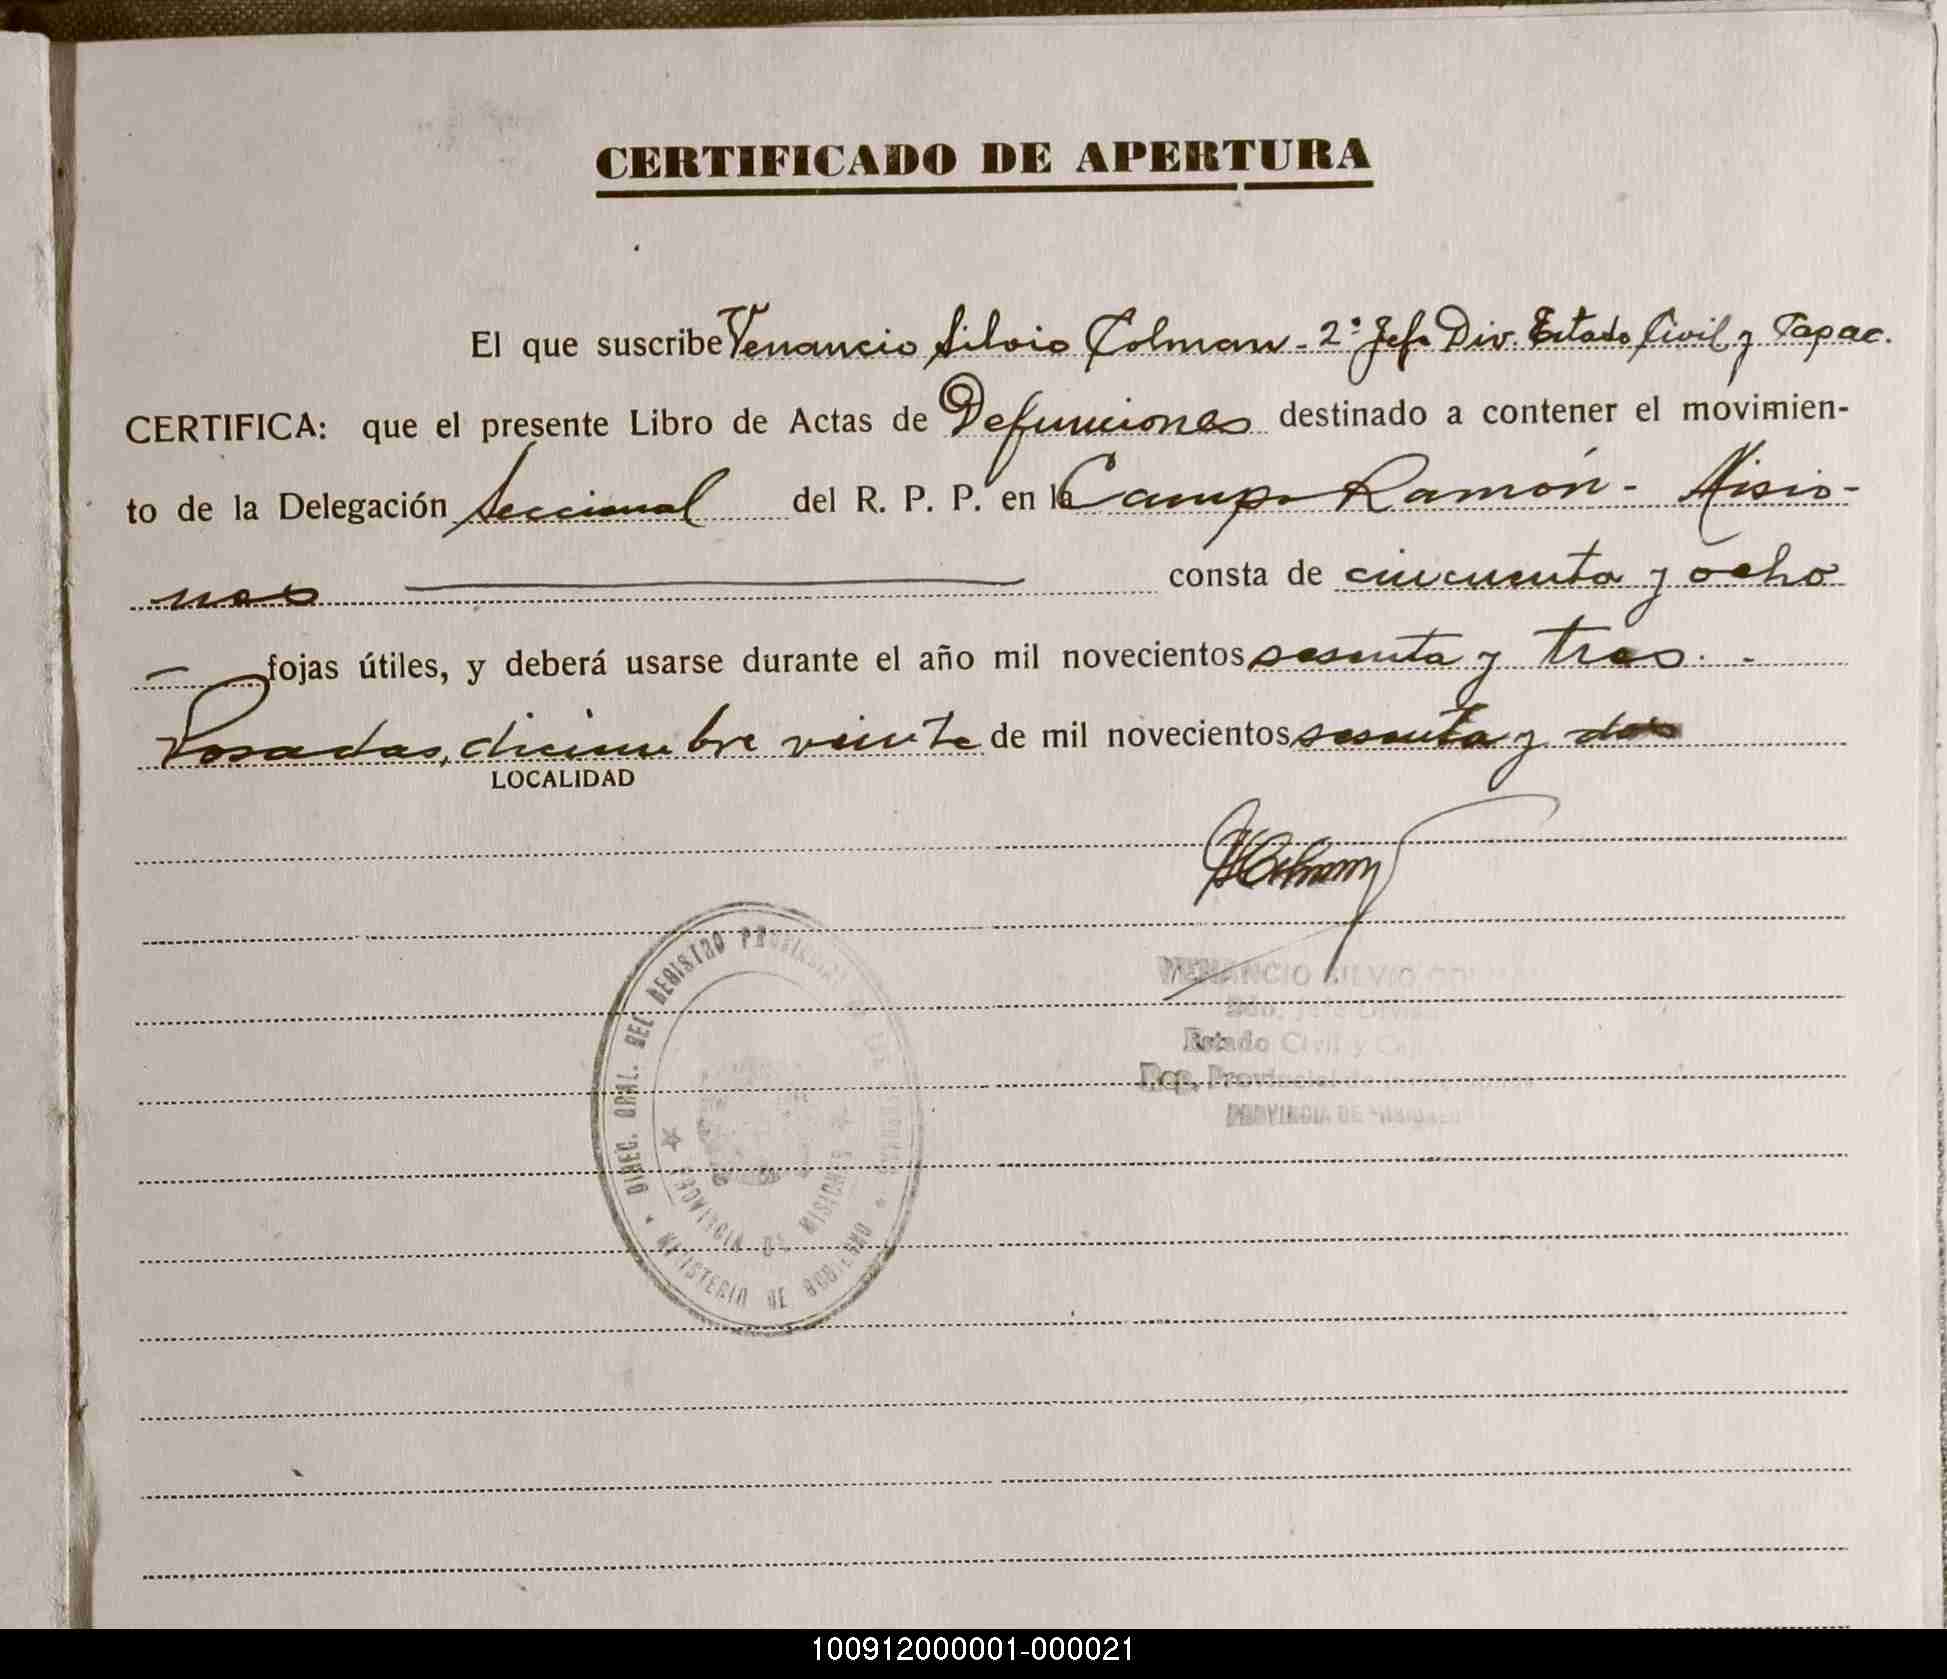 CERTIFICADO DE APERTURA
El que suscribe Venancio Silvio Colman - 2º Jefe Div. Estado Civil y Capac.
CERTIFICA: que el presente Libro de Actas de Defunciones destinado a contener el movimien-
to de la Delegación Seccional del R. P. P. en la Campo Ramón - Misio-
nes consta de cincuenta y ocho
fojas útiles, y deberá usarse durante el año mil novecientos sesenta y tres. -
Posadas, diciembre veinte de mil novecientos sesenta y dos
LOCALIDAD
VENANCIO SILVIO COLMAN
2do. Jefe Divis
Estado Civil y Cap
Reg. Provincial de
PROVINCIA DE MISIONES
DIREC. GRAL. DEL REGISTRO PROVINCIAL DE LAS PERSONAS
PROVINCIA DE MISIONES
MINISTERIO DE GOBIERNO
100912000001-000021